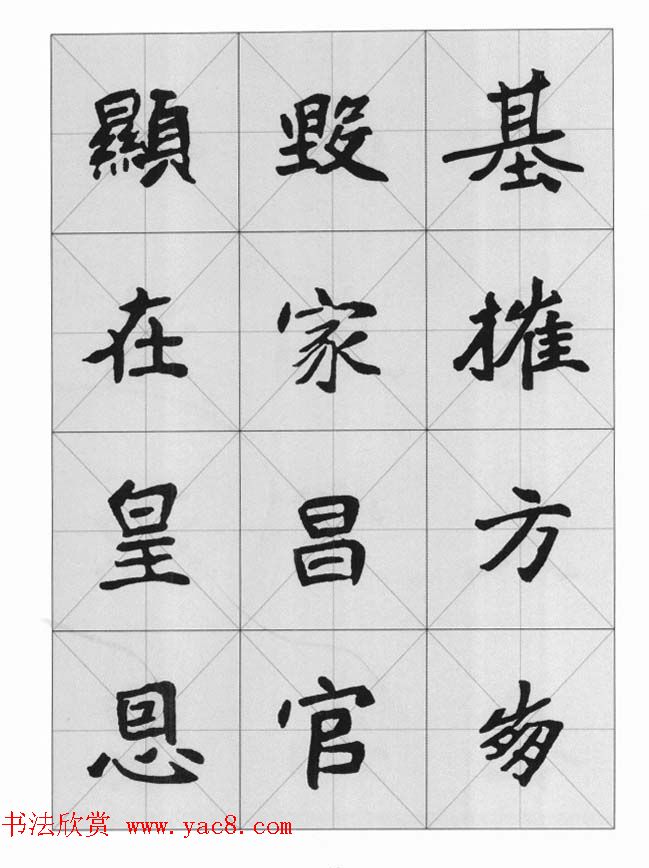 基摧方
毀家昌官
顯在皇恩
书法欣赏 www.yac8.com